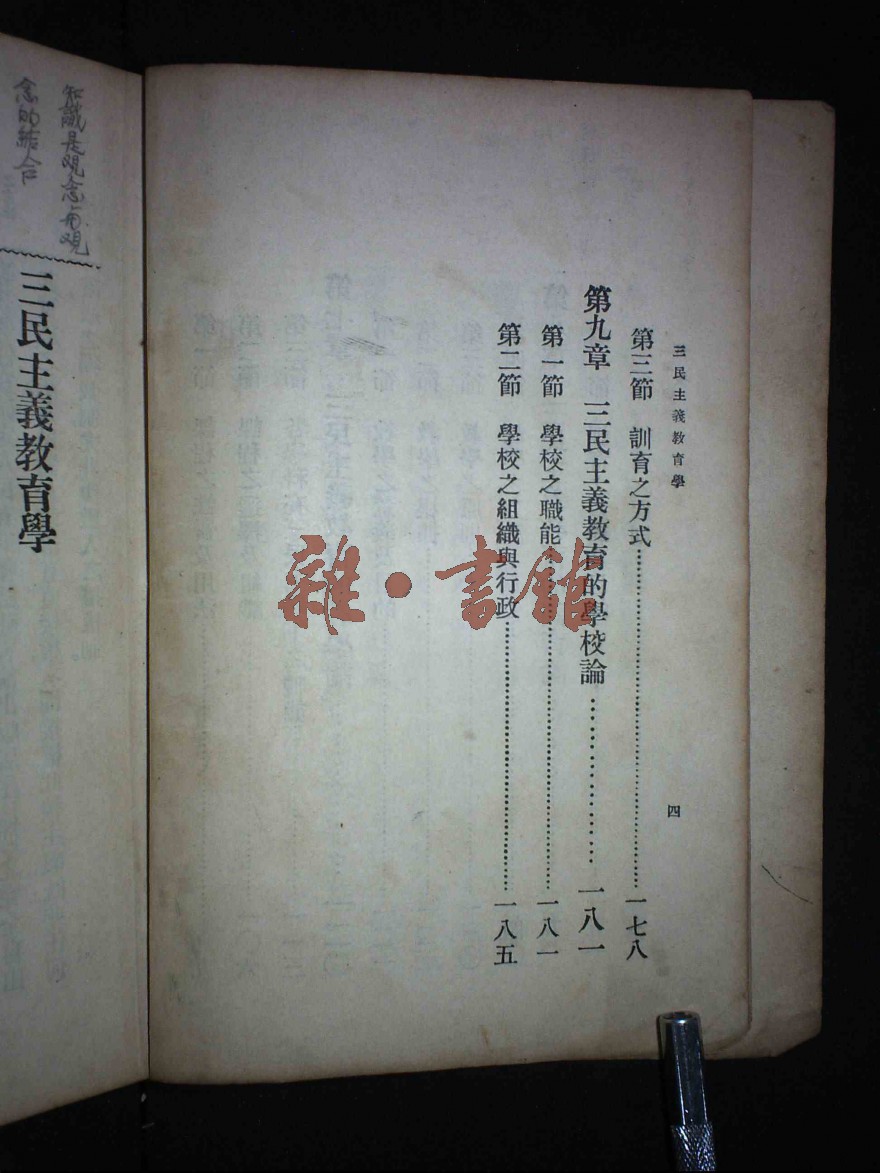 三民主義教育學
四
第三節 訓育之方式……一七八
第九章 三民主義教育的學校論……一八一
第一節 學校之職能……一八一
第二節 學校之組織與行政……一八五
雜·書館
知識是观念与观
念的結合
三民主義教育學